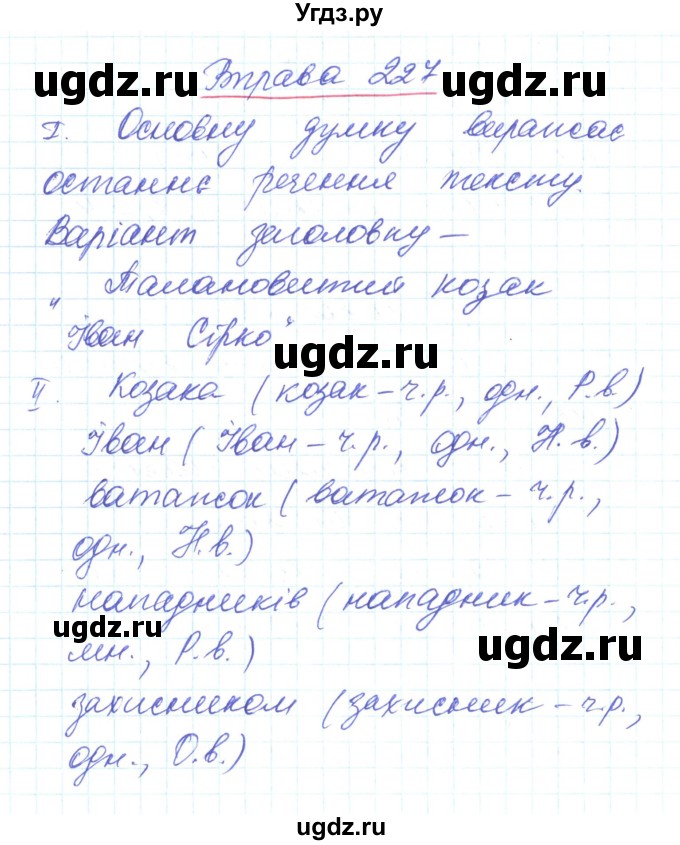 Угдз.ру
Вправа 227
ugdz.ru ugdz.ru
I. Основну думку виражає
останнє речення тексту.
Варіант заголовку –
„Талановитий козак
Іван Сірко"
ugdz.ru
II. Козака (козак – ч.р., одн., Р.в.)
Іван (Іван – ч.р., одн., Н.в.)
ватажок (ватажок – ч.р.,
одн., Н.в.)
нападників (нападник – ч.р.,
ugdz.ru ugdz.ru
мн., Р.в.)
захисником (захисник – ч.р.,
одн., О.в.)
ugdz.ru
ugdz.ru